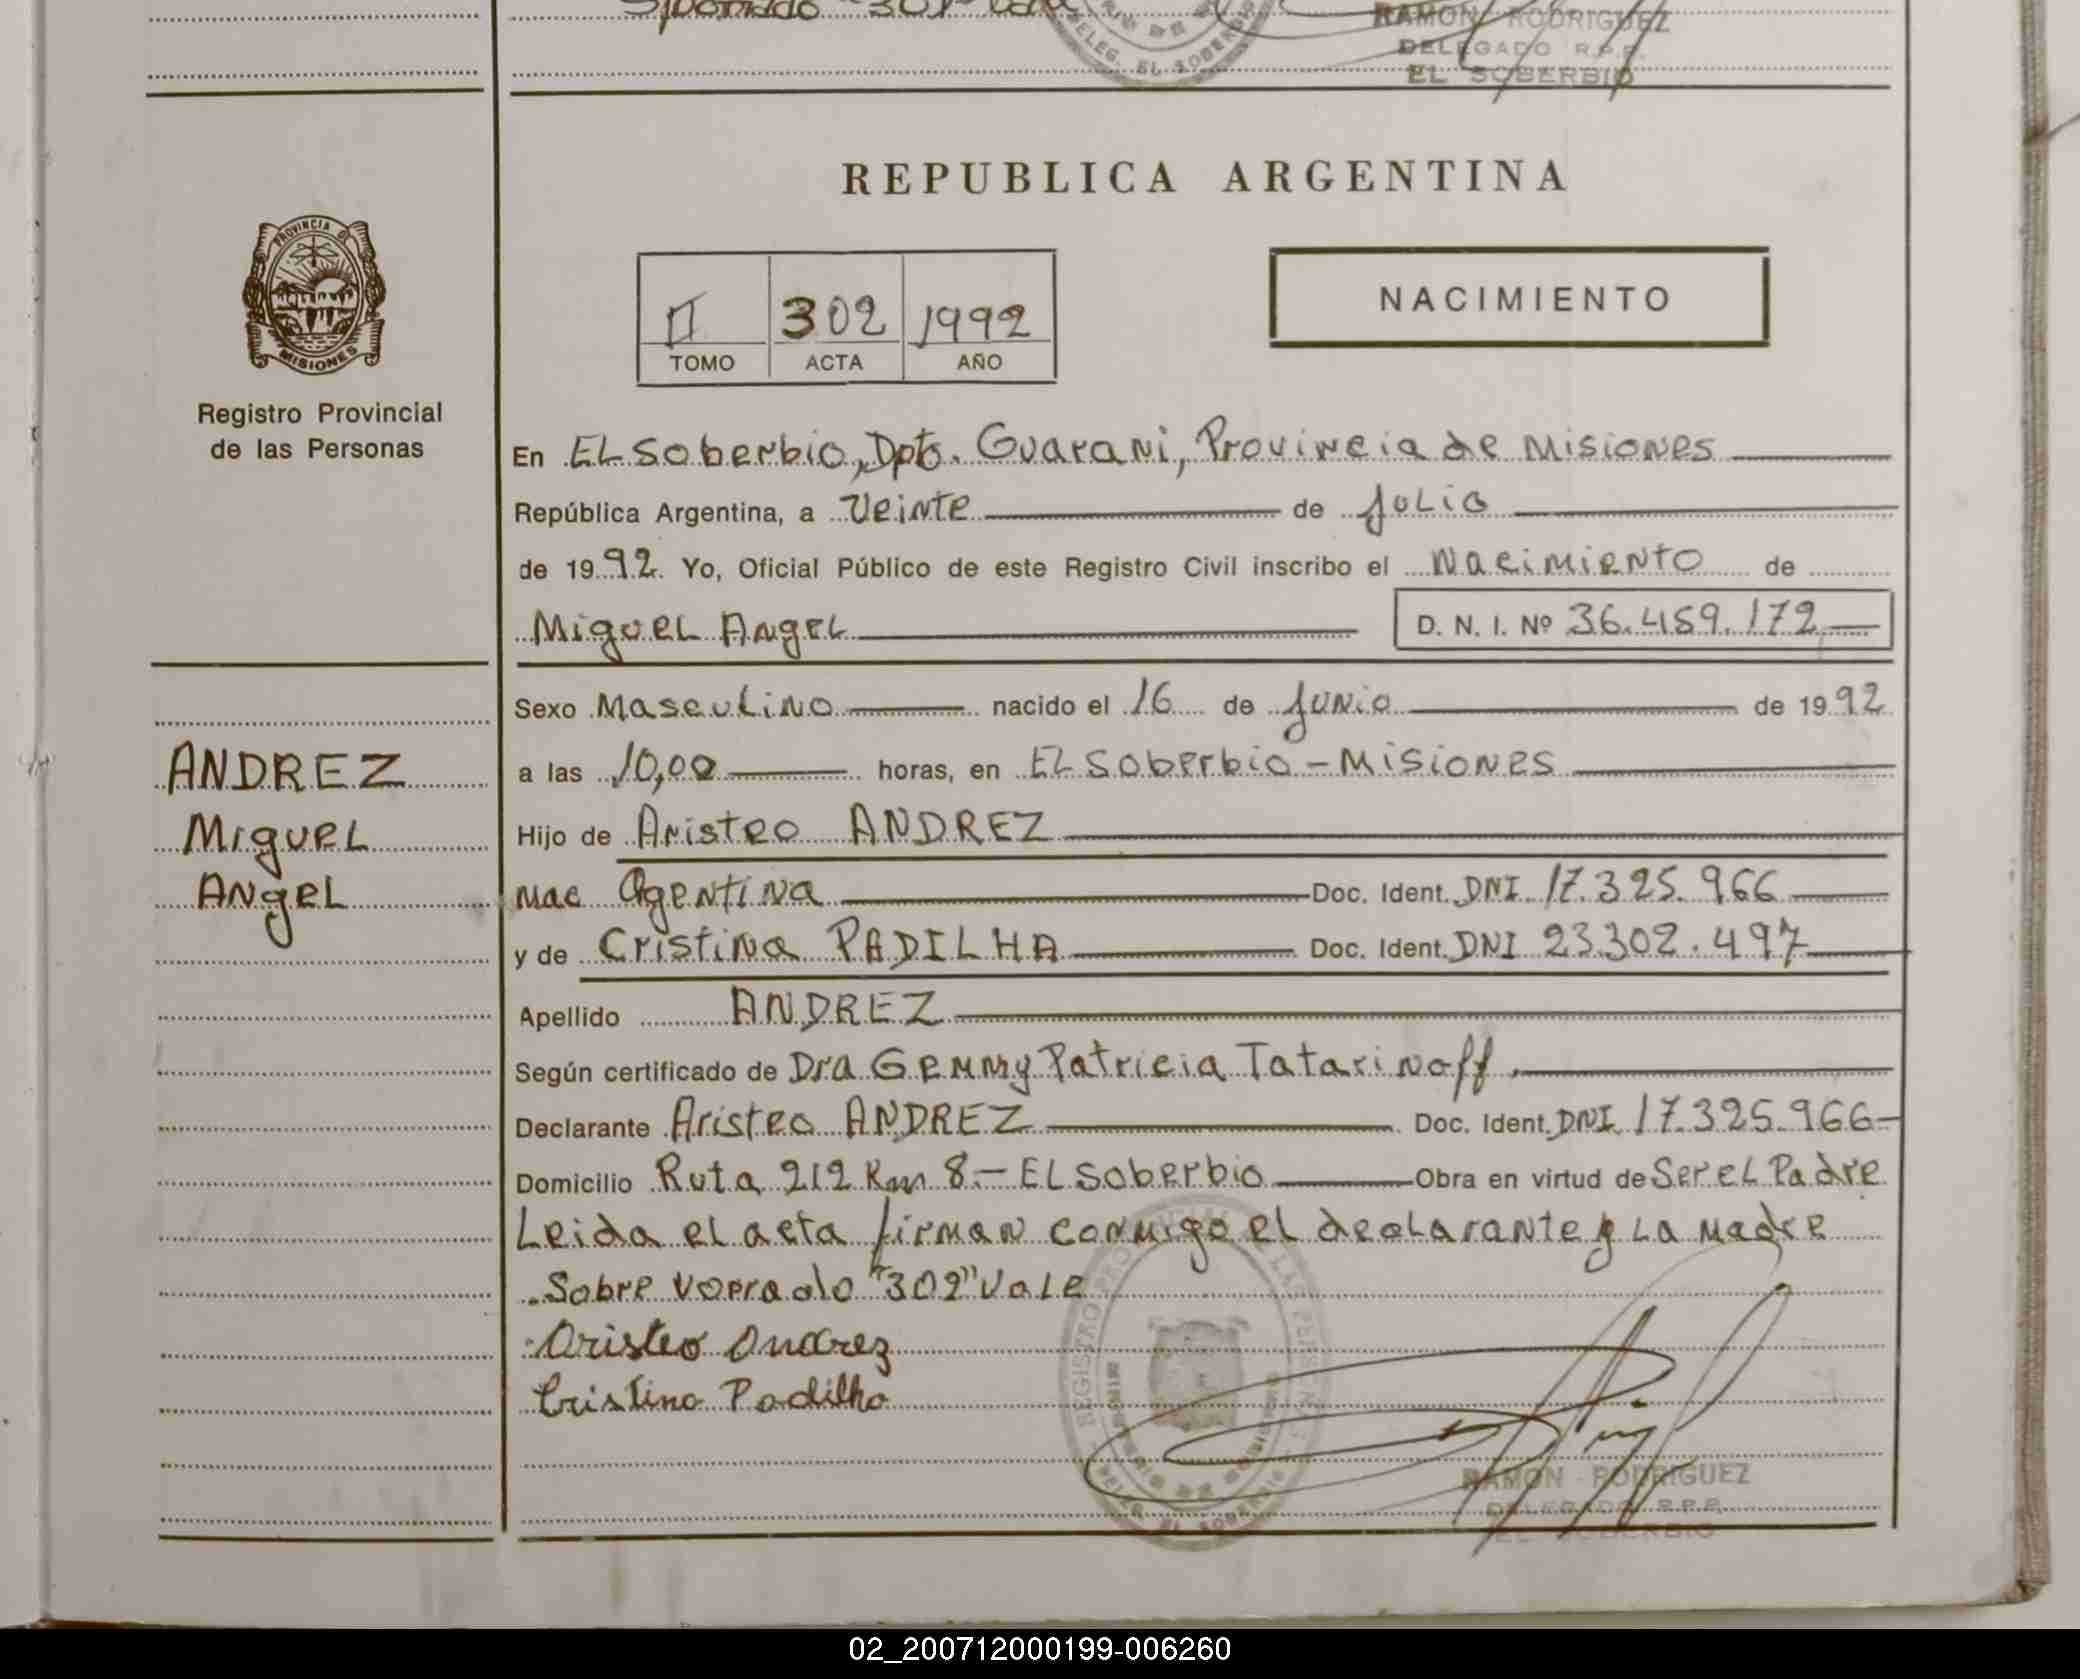 301
DELEG. EL SOBERBIO
RAMON RODRIGUEZ
DELEGADO R.P.P.
EL SOBERBIO
PROVINCIA DE
MISIONES
Registro Provincial
de las Personas
ANDREZ
Miguel
Angel
REPUBLICA ARGENTINA
II 302 1992
TOMO ACTA AÑO
NACIMIENTO
En EL Soberbio, Dpto. Guarani, Provincia de Misiones
República Argentina, a Veinte de Julio
de 1992. Yo, Oficial Público de este Registro Civil inscribo el Nacimiento de
Miguel Angel D. N. I. Nº 36.459.172
Sexo Masculino nacido el 16 de Junio de 1992
a las 10,00 horas, en EL Soberbio - Misiones
Hijo de Aristeo ANDREZ
Nac Agentina Doc. Ident. DNI 17.325.966
y de Cristina PADILHA Doc. Ident. DNI 23.302.497
Apellido ANDREZ
Según certificado de Dra Gemmy Patricia Tatarinoff.
Declarante Aristeo ANDREZ Doc. Ident. DNI 17.325.966
Domicilio Ruta 212 Km 8.- EL Soberbio Obra en virtud de Ser el Padre
Leida el acta firman conmigo el declarante y La Madre
Sobre vorrado "302" Vale
Aristeo Andrez
Cristina Padilha
REGISTRO PROVINCIAL DE LAS PERSONAS
DELEG. EL SOBERBIO
RAMON RODRIGUEZ
DELEGADO R.P.P.
EL SOBERBIO
02_200712000199-006260